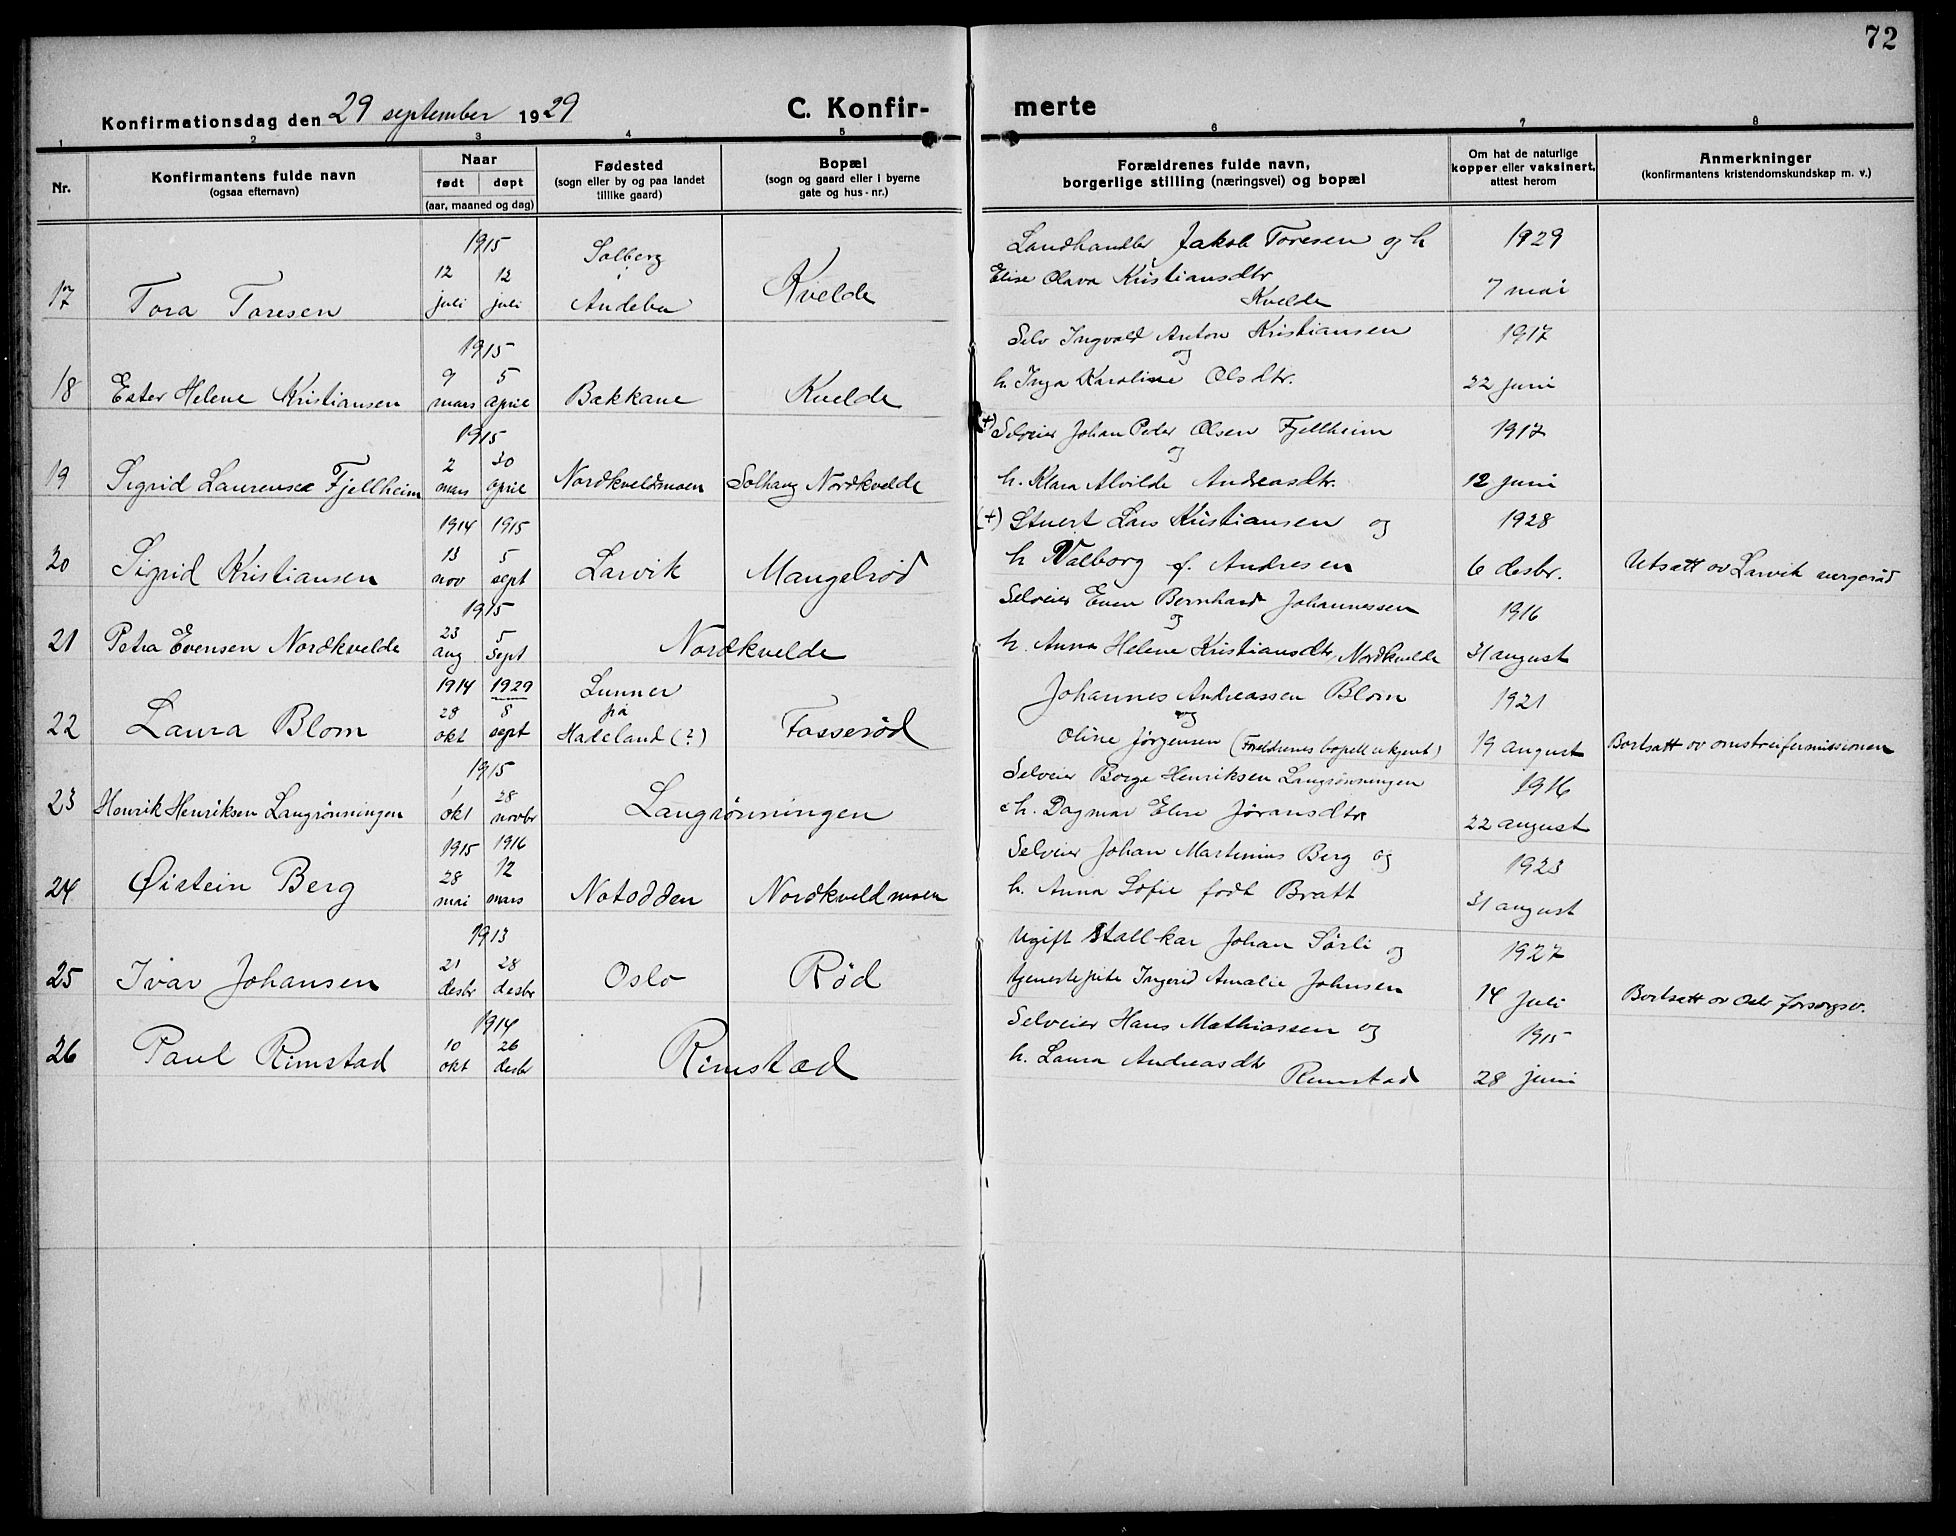 72
Konfirmationsdag den 29 september 1929
C. Konfir-
merte
1 2 3 4 5 6 7 8
Nr.
Konfirmantens fulde navn
(ogsaa efternavn)
Naar
født døpt
(aar, maaned og dag)
Fødested
(sogn eller by og paa landet
tillike gaard)
Bopæl
(sogn og gaard eller i byerne
gate og hus-nr.)
Forældrenes fulde navn,
borgerlige stilling (næringsvei) og bopæl
Om hat de naturlige
kopper eller vaksinert,
attest herom
Anmerkninger
(konfirmantens kristendomskundskap m. v.)
1915 Solberg Landhandler Jakob Toresen og h 1929
12 12 i Elise Olava Kristiansdtr
17 Tora Toresen juli juli Andebu Kvelde Kvelde 7 mai
1915 Selv Ingvald Anton Kristiansen 1917
9 5 og
18 Ester Helene Kristiansen mars april Bakkane Kvelde h. Inga Karoline Olsdtr. 22 juni
1915 (+) Selveier Johan Peder Olsen Fjellheim 1917
2 30 og
19 Sigrid Laurense Fjellheim mars april Nordkveldmoen Solhaug Nordkvelde h. Klara Alvilde Andreasdtr. 12 juni
1914 1915 (+) Stuert Lars Kristiansen og 1928
20 Sigrid Kristiansen 13 nov 5 sept Larvik Mangelrød h Valborg f. Andresen 6 desbr. Utsatt av Larvik vergeråd
1915 Selveier Even Bernhard Johannessen 1916
23 5 og
21 Petra Evensen Nordkvelde aug. sept Nordkvelde h. Anna Helene Kristiansdtr Nordkvelde 31 august
1914 1929 Lunner Johannes Andreassen Blom 1921
28 8 på og
22 Laura Blom okt sept Hadeland (?) Fosserød Oline Jørgensen (Foreldrenes bopell ukjent) 19 august Bortsatt av omstreifermissionen
1915 Selveier Borge Henriksen Langrønningen 1916
1 28
23 Henrik Henriksen Langrønningen okt novbr Langrønningen h. Dagmar Elise Jøransdtr 22 august
1915 1916 Selveier Johan Martinius Berg og 1923
28 12
24 Øistein Berg mai mars Notodden Nordkveldmoen h. Anna Sofie født Bratt 31 august
1913 Ugift Stallkar Johan Sørli og 1927
21 28
25 Ivar Johansen desbr desbr Oslo Rød tjenestepike Ingerid Amalie Johnsen 14 juli Bortsatt av Oslo forsorgsv.
1914 Selveier Hans Mathiassen og 1915
10 26
26 Paul Rimstad okt desbr Rimstad h. Laura Andreasdtr
Rimstad 28 juni